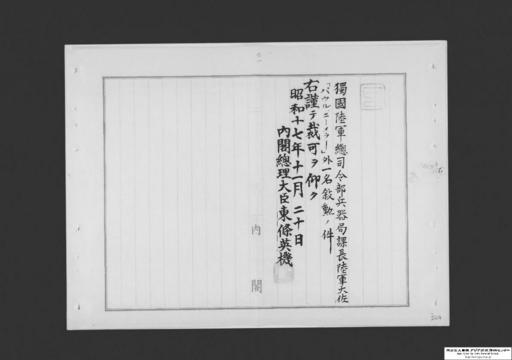 獨國陸軍總司令部兵器局課長陸軍大佐
「パウルニーメラー」外一名敍勲ノ件
右謹テ裁可ヲ仰ク
昭和十七年十一月二十日
內閣總理大臣東條英機
內閣